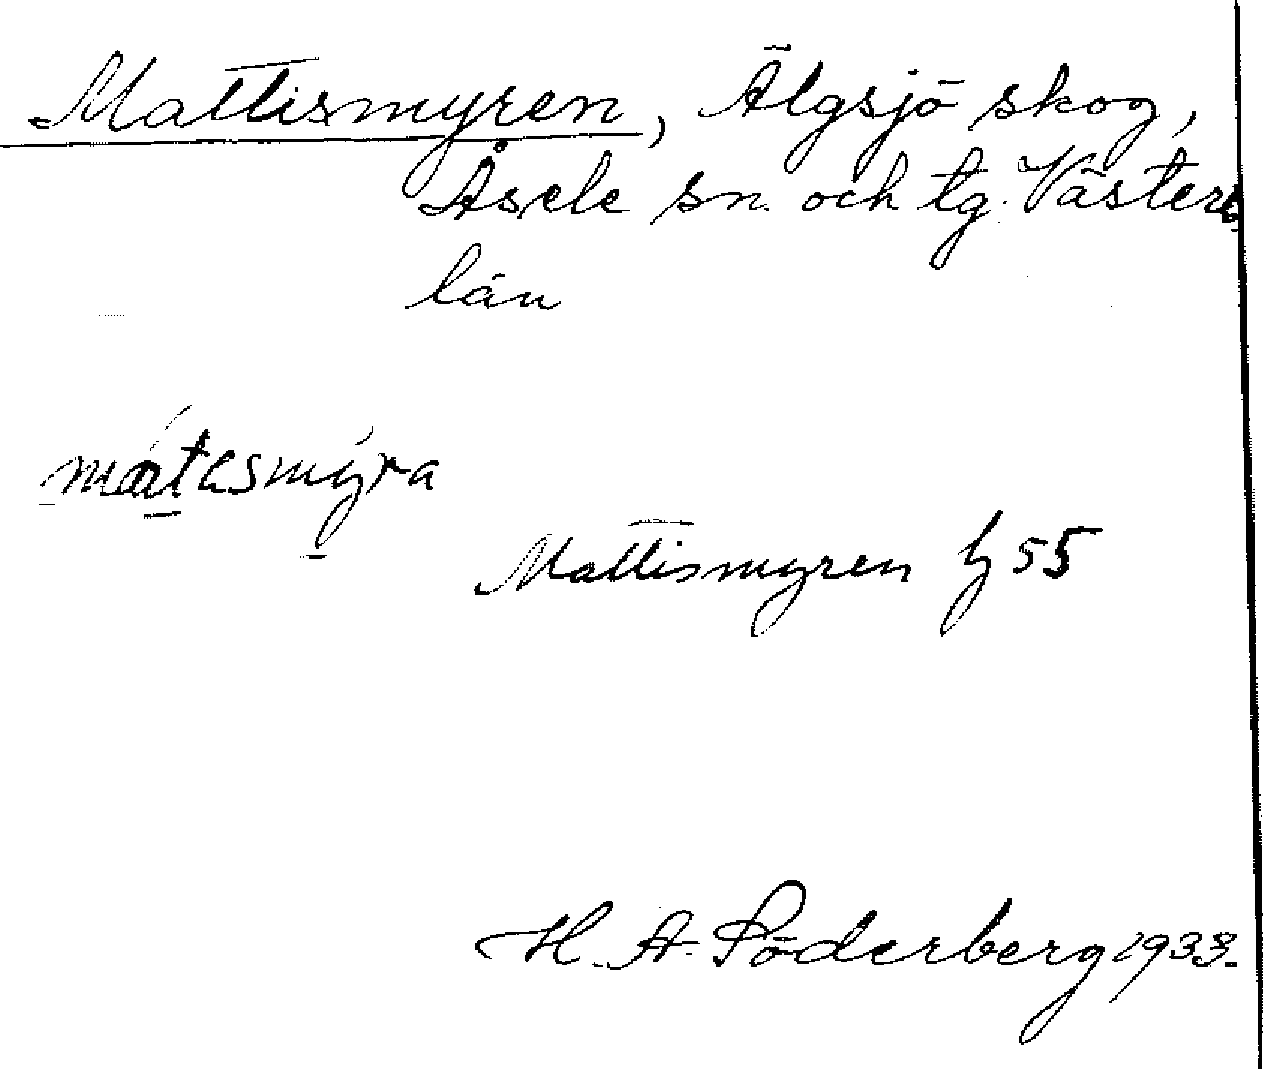 Mattismyren, Älgsjö skog,
Åsele sn. och tg. Västerb
län
mátasmýra
Mattismyren hj 55
H. A. Söderberg 1933.